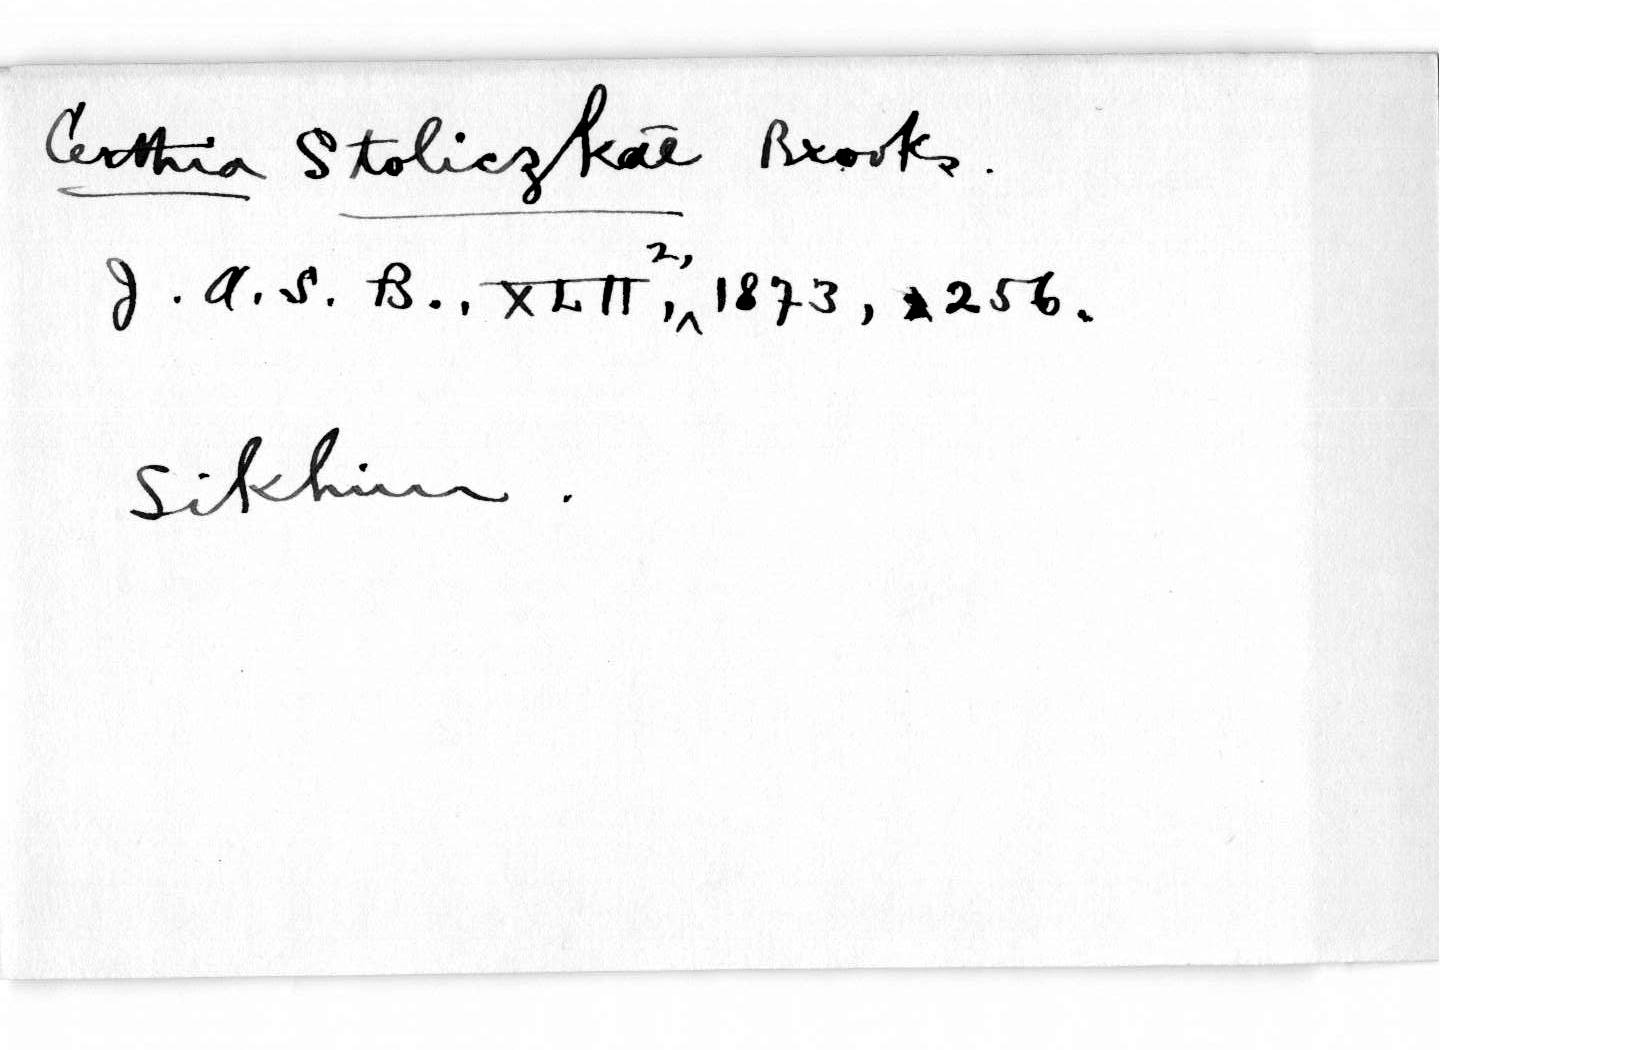 Certhia Stoliczkae Brooks.
J. A. S. B., XLII, 2, 1873, 256.
Sikhim.